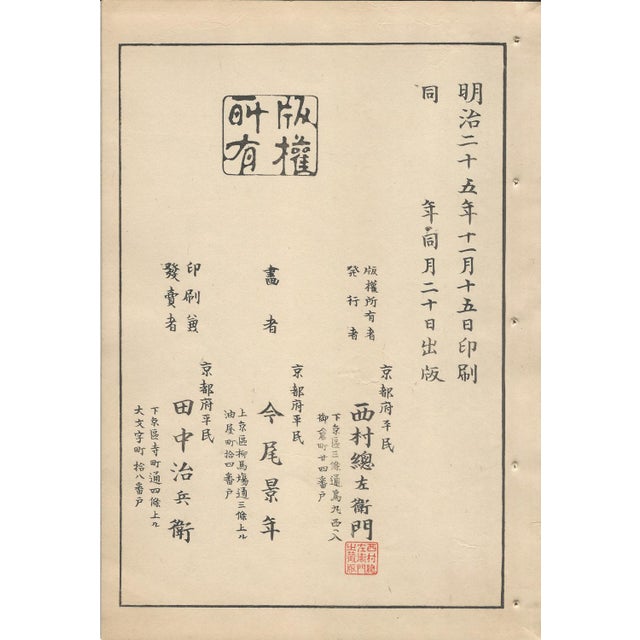 明治二十五年十一月十五日印刷
同年同月二十日出版
版權
所有
版權所有者
発行者
京都府平民
西村總左衛門
下京區三條通烏丸西ヘ入
御倉町廿四番戸
畫者
京都府平民
今尾景年
上京區柳馬塲通三條上ル
油屋町拾四番戸
印刷兼
發賣者
京都府平民
田中治兵衛
下京區寺町通四條上ル
大文字町拾八番戸
西村總
左衛門